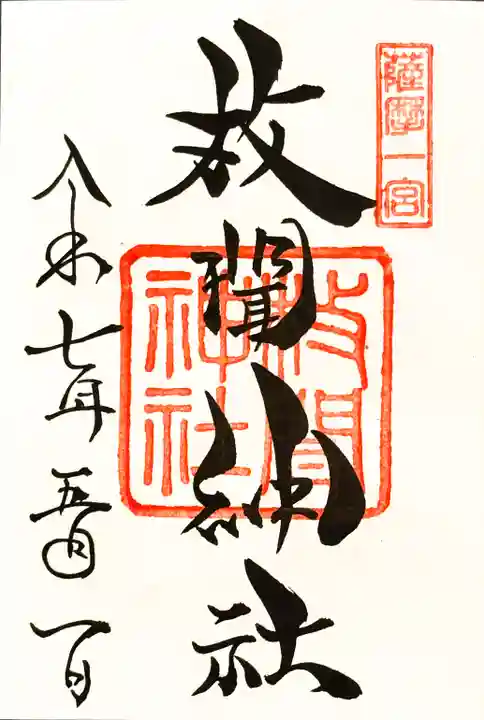 薩摩一宮
枚聞神社
枚聞
神社
令和七年五月一日